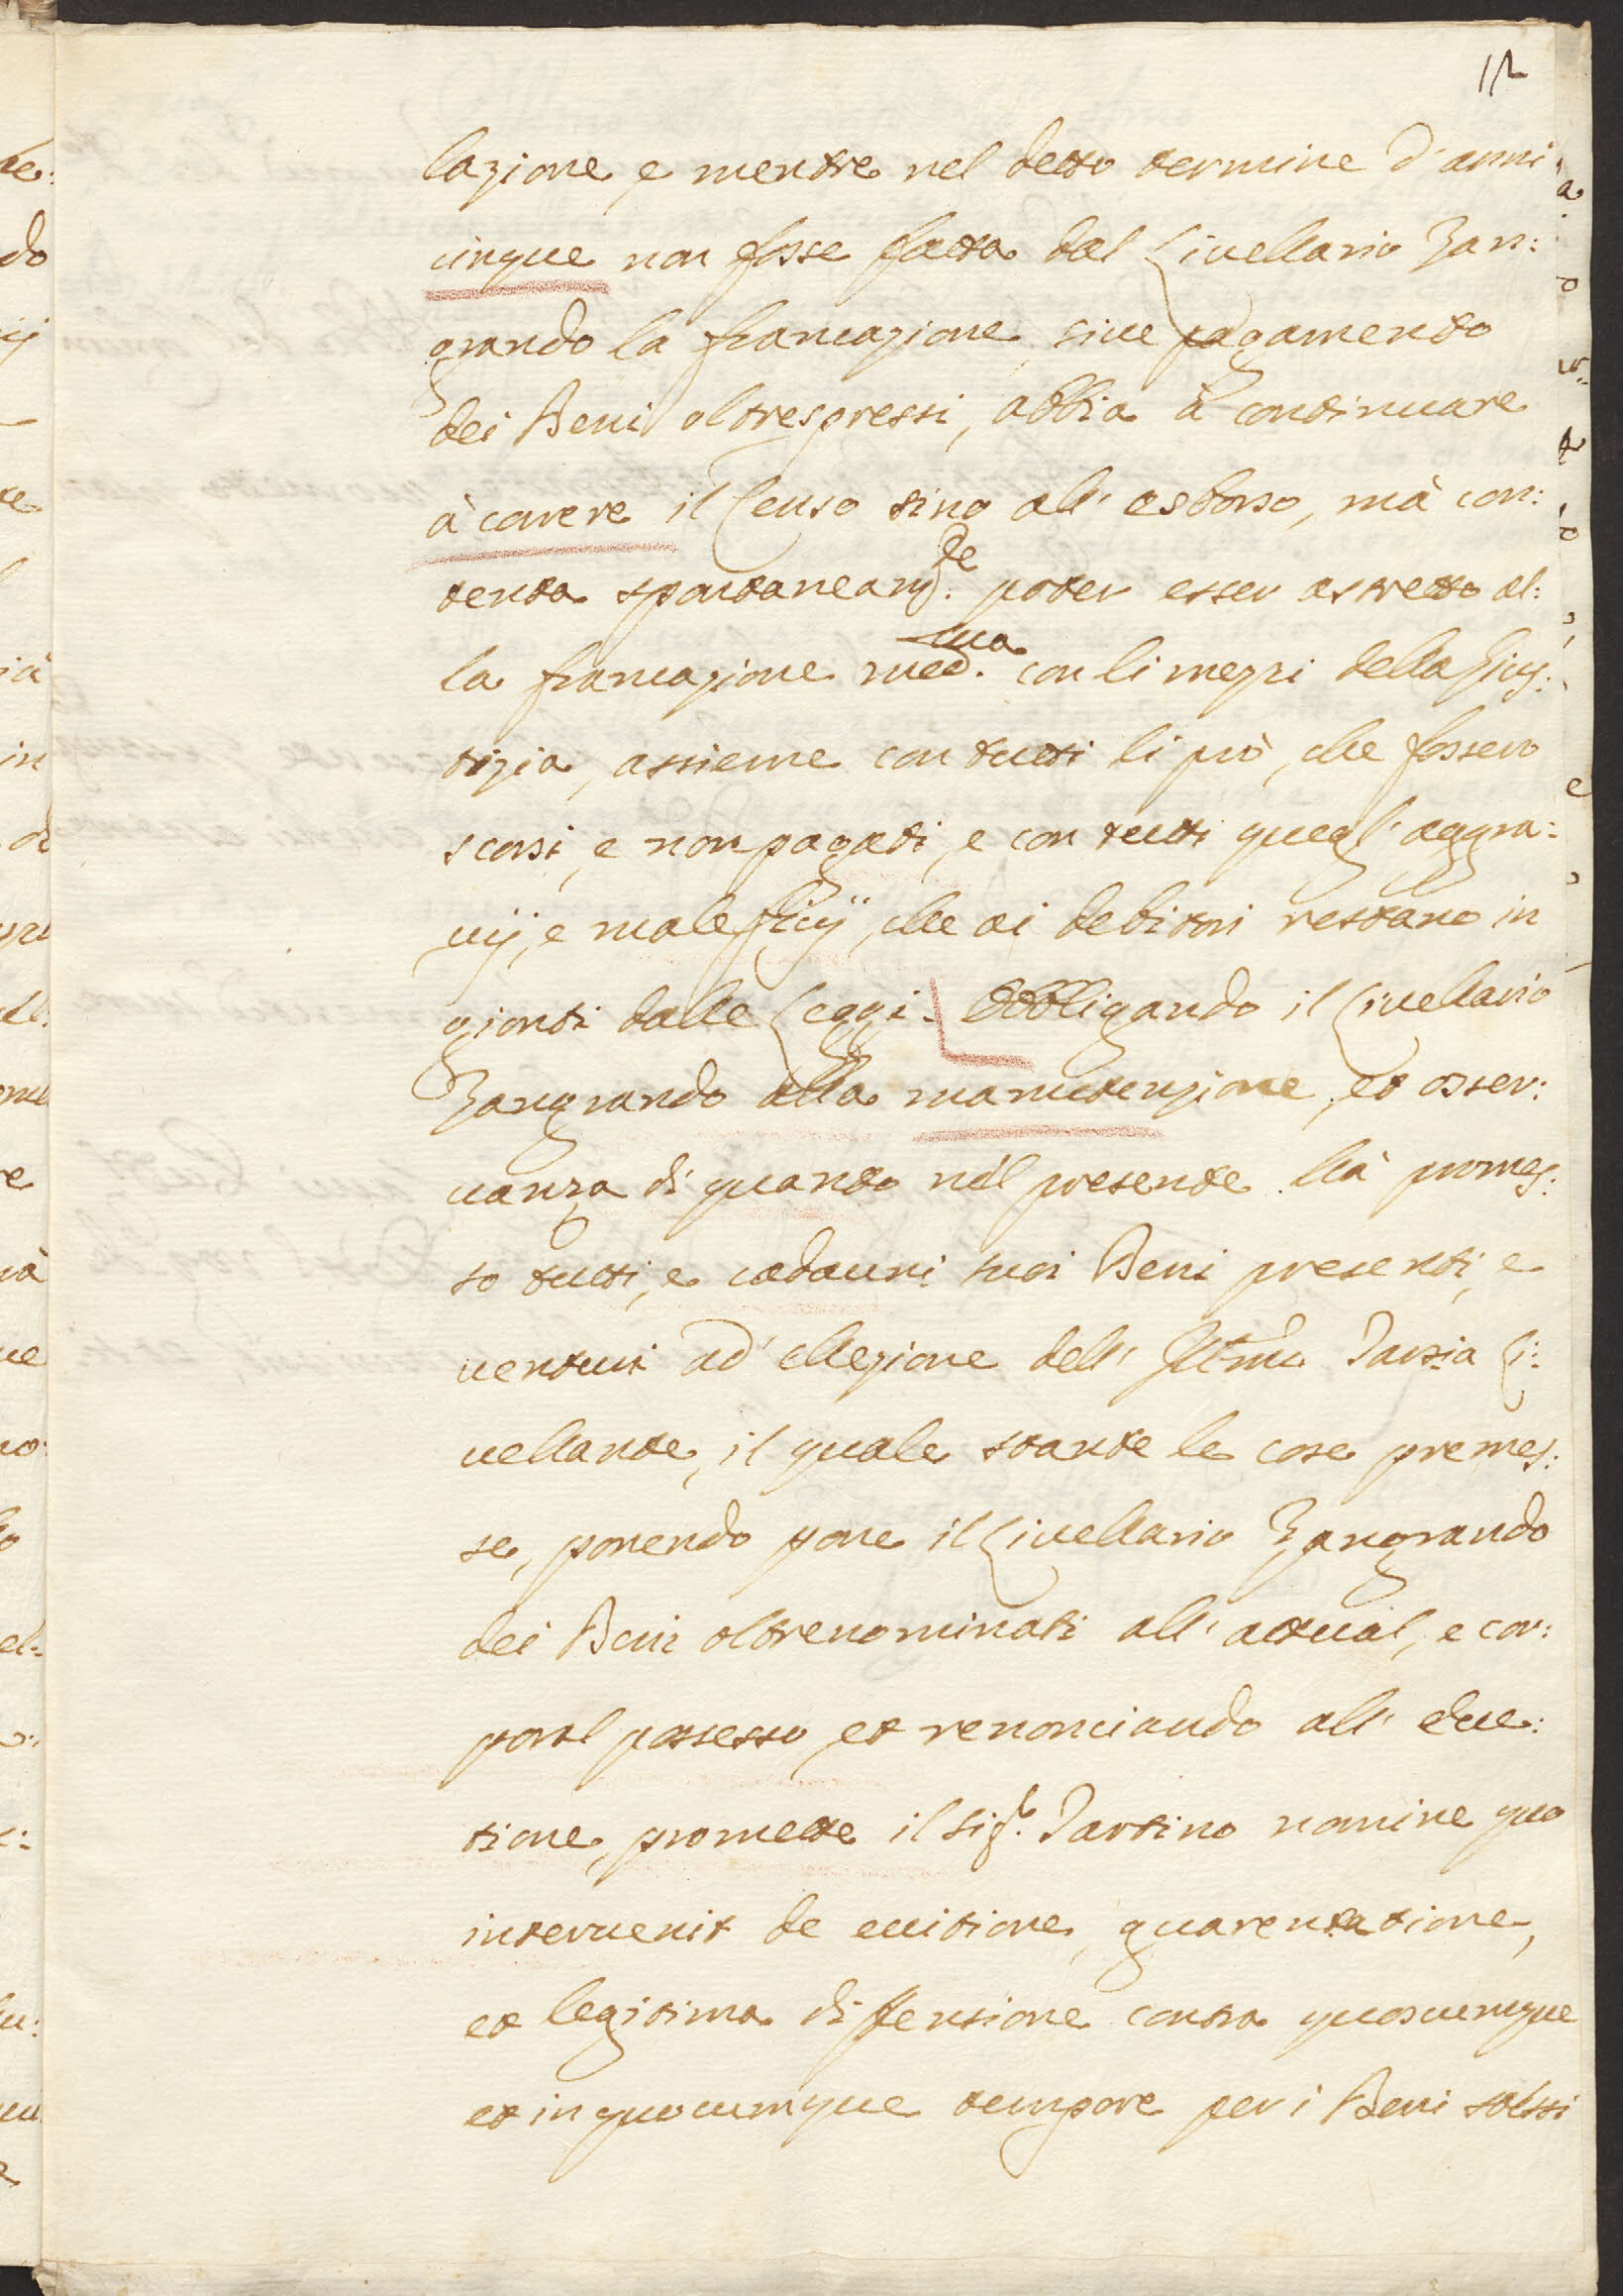 12
lazione, e mentre nel detto termine d'anni
cinque non fosse fatta dal Livellario Zan:
grando la francazione, sive pagamento
dei Beni oltrespressi, abbia à continuare
à correre il Censo sino all'esborso, mà con:
tenta spontaneam.te poter esser astretto al:
la francazione med.ma con li mezzi della Gius:
tizia, assieme con tutti li prò, che fossero
scorsi, e non pagati, e con tutti quegl'aggra:
vij, e maleficij, che ai debitori restano in
gionti dalle Leggi. Obbligando il Livellario
Zangrando alla manutenzione, et osser:
vanza di quanto nel presente hà promes:
so tutti, e cadauni suoi Beni presenti, e
venturi ad ellezione dell' Parzia Li:
vellante, il quale stante le cose premes:
se, ponendo pone il Livellario Zangrando
dei Beni oltrenominati all'actual, e cor:
poral possesso, et renonciando all' ecce:
tione, promette il Sig.r Partino nomine quo
intervenit de evitione, guarentatione,
et legitima diffensione contra quoscumque
et in quocumque tempore per i Beni